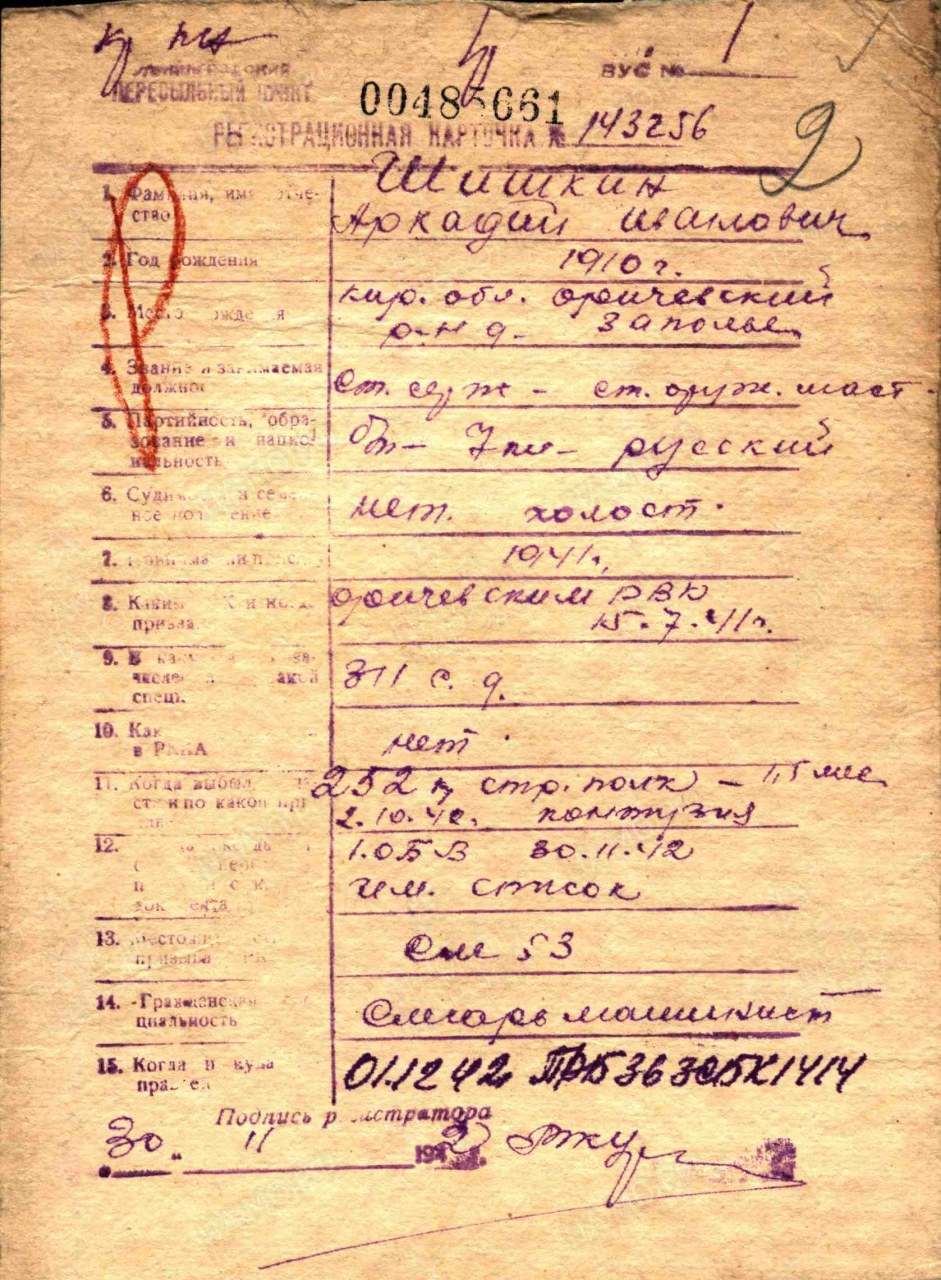 ВУС № 1
ЛЕНИНГРАДСКИЙ
ПЕРЕСЫЛЬНЫЙ ПУНКТ
00485661
РЕГИСТРАЦИОННАЯ КАРТОЧКА № 143256
2
1. Фамилия, имя отче-
ство
Шишкин
Аркадий Иванович
2. Год рождения
1910 г.
3. Место рождения
кир. обл. оричевский
р-н д. Заполье
4. Звание и занимаемая
должнос
ст. серж – ст. оруж. маст.
5. Партийность, обра-
зование и нацио-
нальность
б/п – 7 кл – русский
6. Судимость и семей-
ное положение
нет. холост.
7.
1941 г.
8. Каким РВК и когда
призва
оричевским РВК
15.7.41 г.
9. В
числе
спец.
311 с. д.
10. Как
в РККА
нет.
11. Когда выбыл
сти и по какой при
252 стр. полк – 1,5 мес
2.10.42. контузия
12. когда
1. ОБВ 30.11.42
им. список
13. Место
призыва
См 53
14. Гражданская спе
циальность
Слесарь машинист
15. Когда и куда
правлен
01.12.42 ПРБ 36 ЗСБК 1414
Подпись регистратора
30 " 11 1942 г.